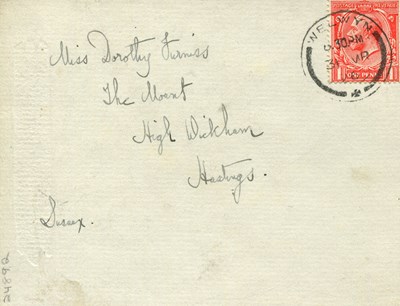 Miss Dorothy Furniss
The Mount
High Wickham
Hastings.
Sussex.
WELWYN
6.30PM
ONE PENNY
24899